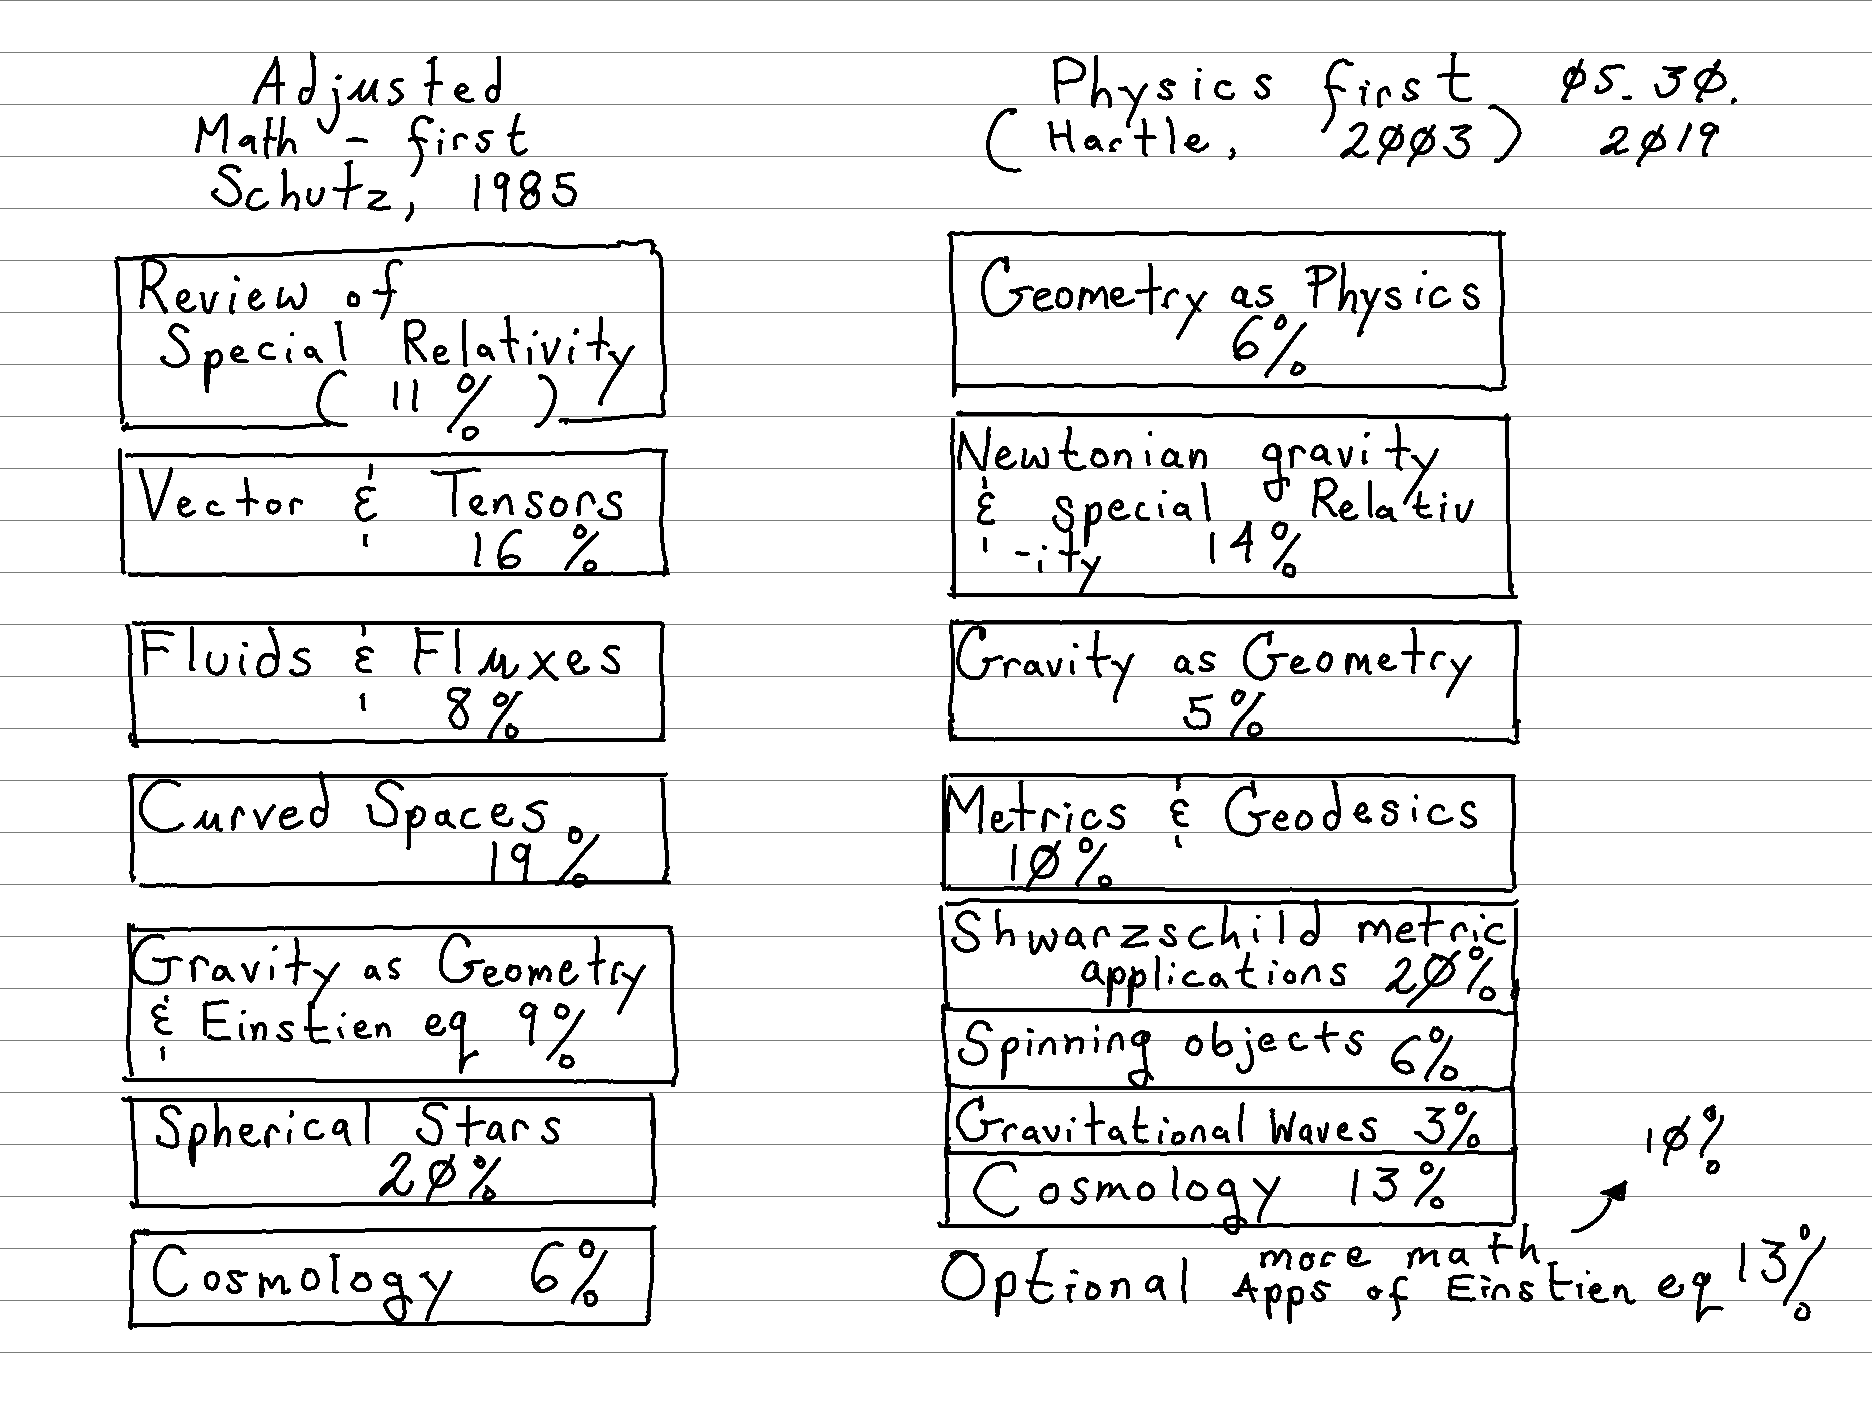 Adjusted
Math - first
Schutz, 1985
Review of
Special Relativity
( 11 % )
Vector & Tensors
16 %
Fluids & Fluxes
8%
Curved Spaces
19 %
Gravity as Geometry
& Einstien eq 9%
Spherical Stars
20%
Cosmology 6%
Physics first 05.30.
(Hartle, 2003) 2019
Geometry as Physics
6%
Newtonian gravity
& special Relativ
-ity 14%
Gravity as Geometry
5%
Metrics & Geodesics
10%
Shwarzschild metric
applications 20%
Spinning objects 6%
Gravitational Waves 3%
Cosmology 13%
10%
more math
Optional Apps of Einstien eq 13%